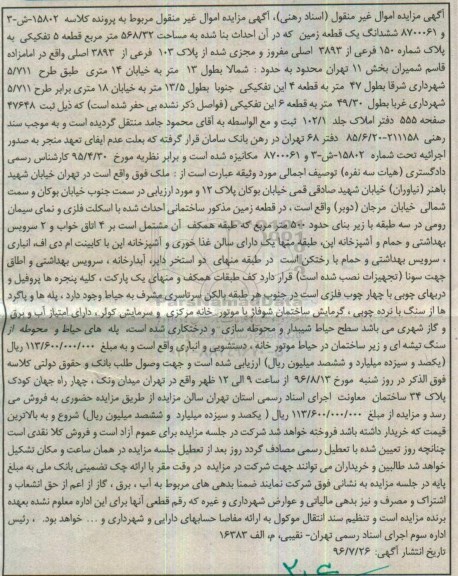 آگهی مزایده اموال غیر منقول (اسناد رهنی)، آگهی مزایده اموال غیر منقول مربوط به پرونده کلاسه ۱۵۸۰۲-ش-۳
و ۸۷۰۰۰۶۱ ششدانگ یک قطعه زمین که در آن احداث بنا شده به مساحت ۵۶۸/۳۲ متر مربع قطعه ۵ تفکیکی به
پلاک شماره ۱۵۰ فرعی از ۳۸۹۳ اصلی مفروز و مجزی شده از پلاک ۱۰۳ فرعی از ۳۸۹۳ اصلی واقع در امامزاده
قاسم شمیران بخش ۱۱ تهران محدود به حدود : شمالا بطول ۱۳ متر به خیابان ۱۴ متری طبق طرح ۵/۷۱۱
شهرداری شرقا بطول ۴۷ متر به قطعه ۴ این تفکیکی جنوبا بطول ۱۳/۵ متر به خیابان ۱۸ متری برابر طرح ۵/۷۱۱
شهرداری غربا بطول ۴۹/۳۰ متر به قطعه ۶ این تفکیکی (فواصل ذکر نشده بی حفر شده است) که ذیل ثبت ۴۷۶۴۸
صفحه ۵۵۵ دفتر املاک جلد ۱۰۲/۱ ثبت و مع الواسطه به آقای محمود جامد منتقل گردیده است و به موجب سند
رهنی ۲۱۱۱۵۸-۸۵/۶/۲۰ دفتر ۶۸ تهران در رهن بانک سامان قرار گرفته که بعلت عدم ایفای تعهد منجر به صدور
اجرائیه تحت شماره ۱۵۸۰۲-ش-۳ و ۸۷۰۰۰۶۱ مکانیزه شده است و برابر نظریه مورخ ۹۵/۴/۳۰ کارشناس رسمی
دادگستری (هیات سه نفره) توصیف اجمالی مورد وثیقه عبارت است از : ملک فوق واقع است در تهران خیابان شهید
باهنر (نیاوران) خیابان شهید صادقی قمی خیابان بوکان پلاک ۱۲ و مورد ارزیابی در سمت جنوب خیابان بوکان و سمت
شمالی خیابان مرجان (دوبر) واقع است ، در قطعه زمین مذکور ساختمانی احداث شده با اسکلت فلزی و نمای سیمان
رومی در سه طبقه با زیر بنای حدود ۵۰۰ متر مربع که طبقه همکف آن مشتمل است بر ۴ اتاق خواب و ۲ سرویس
بهداشتی و حمام و آشپزخانه این، طبقه منهایک دارای سالن غذا خوری و آشپزخانه اپن با کابینت ام دی اف، انباری
، سرویس بهداشتی و حمام با رختکن است در طبقه منهای دو استخر دایر، آبدارخانه ، سرویس بهداشتی و اطاق
جهت سونا (تجهیزات نصب شده است) قرار دارد کف طبقات همکف و منهای یک پارکت ، کلیه پنجره ها پروفیل و
دربهای چوبی با چهار چوب فلزی است در جنوب هر طبقه بالکن سرتاسری مشرف به حیاط وجود دارد ، پله ها و پاگرد
ها از سنگ با نرده چوبی ، گرمایش ساختمان شوفاژ با موتور خانه مرکزی و سرمایش کولر ، دارای امتیاز آب و برق
و گاز شهری می باشد سطح حیاط شیبدار و محوطه سازی و درختکاری شده است، پله های حیاط و محوطه از
سنگ تیشه ای و زیر ساختمان در حیاط موتور خانه ، دستشویی و انباری واقع است و به مبلغ ۱۱۳/۶۰۰/۰۰۰/۰۰۰ ریال
(یکصد و سیزده میلیارد و ششصد میلیون ریال) ارزیابی شده است و جهت وصول طلب بانک و حقوق دولتی کلاسه
فوق الذکر در روز شنبه مورخ ۹۶/۸/۱۳ از ساعت ۹ الی ۱۲ ظهر واقع در تهران میدان ونک ، چهار راه جهان کودک
پلاک ۳۴ ساختمان معاونت اجرای اسناد رسمی استان تهران سالن مزایده از طریق مزایده حضوری به فروش می
رسد و مزایده از مبلغ ۱۱۳/۶۰۰/۰۰۰/۰۰۰ ریال ( یکصد و سیزده میلیارد و ششصد میلیون ریال) شروع و به بالاترین
قیمت که خریدار داشته باشد فروخته خواهد شد شرکت در جلسه مزایده برای عموم آزاد است و فروش کلا نقدی است
چنانچه روز تعیین شده با تعطیل رسمی مصادف گردد روز بعد از تعطیل جلسه مزایده در همان ساعت و مکان تشکیل
خواهد شد طالبین و خریداران می توانند جهت شرکت در مزایده در وقت مقرر با ارائه چک تضمینی بانک ملی به مبلغ
پایه در جلسه مزایده به نشانی فوق شرکت نمایند ضمنا بدهی های مربوط به آب ، برق ، گاز از اعم از حق انشعاب و
اشتراک و مصرف و نیز بدهی مالیاتی و عوارض شهرداری و غیره که رقم قطعی آنها برای این اداره معلوم نشده بعهده
برنده مزایده است و تنظیم سند انتقال موکول به ارائه مفاصا حسابهای دارایی و شهرداری و ... خواهد بود. ، رئیس
اداره سوم اجرای اسناد رسمی تهران- نقیبی، م، الف ۱۶۳۸۳
تاریخ انتشار آگهی: ۹۶/۷/۲۶